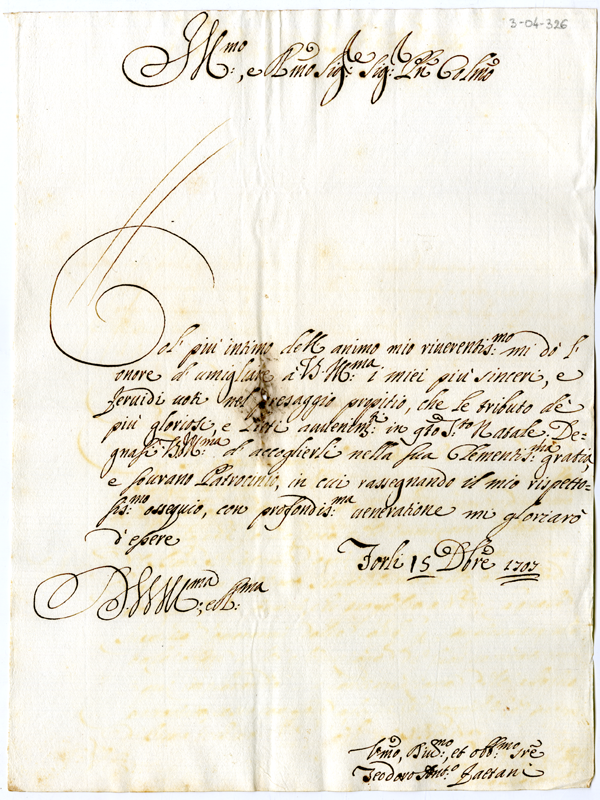 3-04-326
Ill.mo, e R.mo Sig.re Sig.r P.rn Col.mo
Col più intimo dell animo mio riverentis.mo mi dò l'
onore d'umigliare à V.S. Ill.ma i miei più sinceri, e
fervidi voti nel presaggio propitio, che le tributo de'
più gloriosi, e lieti avvenim.ti in q.to S.to Natale. De-
gnasi V.S. Ill.ma d'accoglierli nella sua Clementis.ma gratia,
e sourano Patrocinio, in cui rassegnando il mio rispetto-
sis.mo ossequio, con profondis.ma veneratione mi gloriarò
d'essere
Forlì 15 Dbre 1707
D. V.S. Ill.ma, e R.ma
Um.o, Div.mo, et obb.mo S.re
Teodoro Ant.o Gaetani